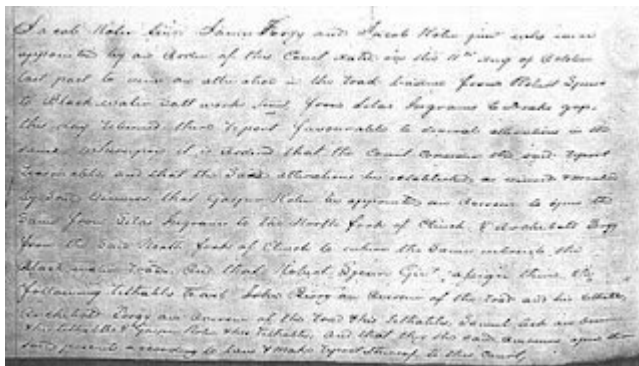 Jacob Koher Senr James Forgy and Jacob Koher junr who were
appointed by an Order of this Court dated on the 11th day of October
last past to view an alteration in the road leading from Robert Spears
to Black water Salt works and from Silas Ingrams to Drake gap
this day returned their report favourable to several alterations in the
same Whereupon it is ordered that the Court Concieve the said report
reasonable, and that the said alterations be established as viewed & marked
by said viewers that Gasper Koher be appointed an Overseer to open the
same from Silas Ingrams to the North fork of Clinch & Archebald Forgy
from the said North fork of Clinch to where the same intersects the
black water road, and that Robert Spears Gent. assign them the
following tithables to wit John Forgy an Overseer of the road and his tithables
Archebald Forgy an Overseer of the road & his tithables, Samuel
& his tithables & Gasper Koher & his tithables, and that they the said Overseers open the
said according to Law & make report thereof to this Court,